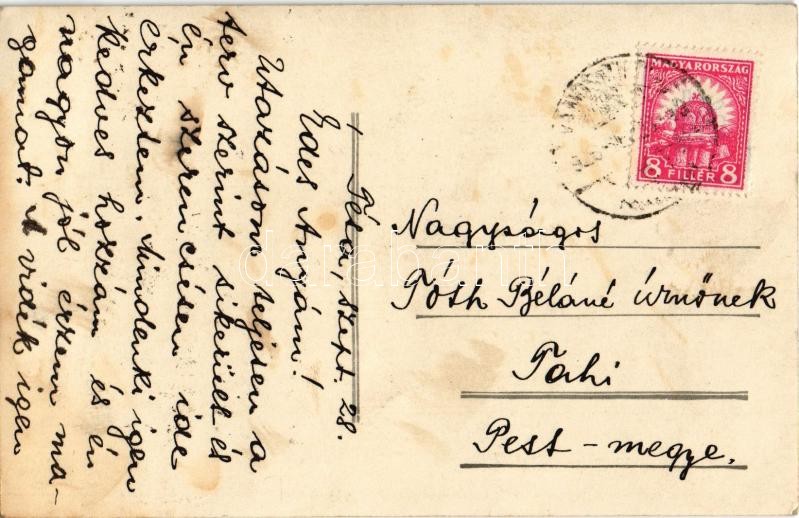 Péla, szept. 28.
Édes Anyám!
Utazásom teljesen a
terv szerint sikerült és
én szerencsésen ide
érkeztem. Mindenki igen
kedves hozzám és én
nagyon jól érzem ma-
gamat. A vidék igen
MAGYARORSZÁG
8 FILLÉR 8
Nagyságos
Tóth Béláné úrnőnek
Tahi
Pest-megye.
darabanth